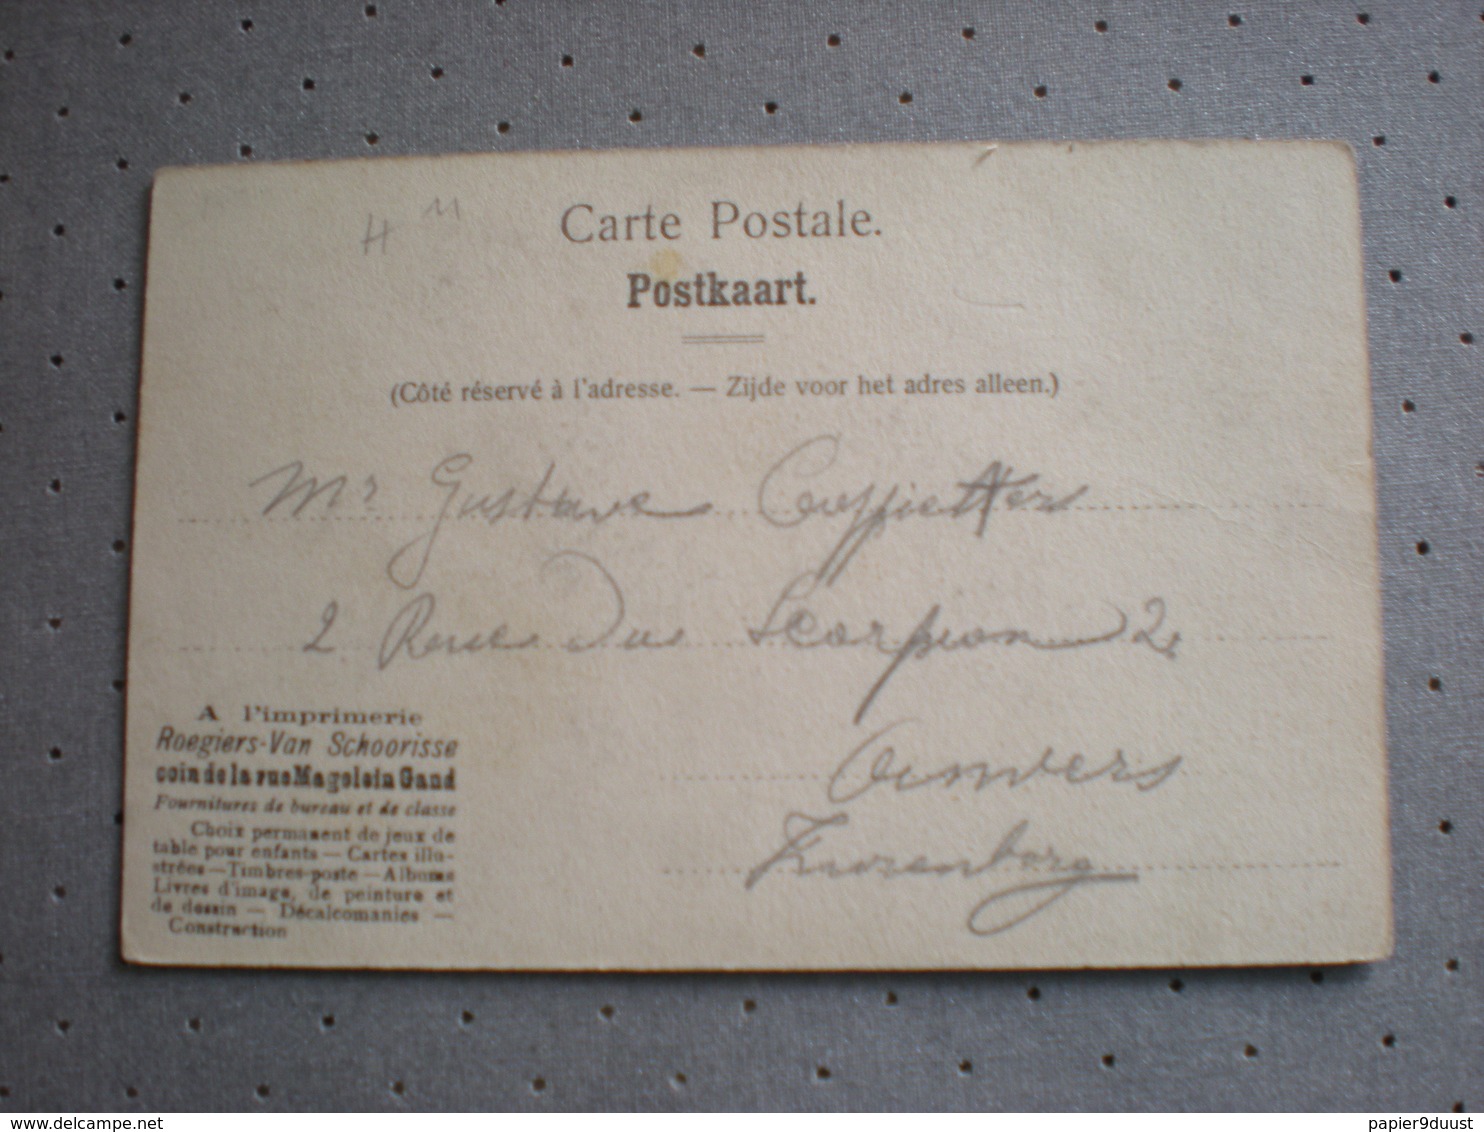 H 11
Carte Postale.
Postkaart.
(Côté réservé à l'adresse. — Zijde voor het adres alleen.)
Mr Gustave Coppietters
2 Rue Du Scorpion 2
Anvers
Zurenborg
A l'imprimerie
Roegiers-Van Schoorisse
coin de la rue Magelein Gand
Fournitures de bureau et de classe
Choix permanent de jeux de
table pour enfants — Cartes illu-
strées — Timbres-poste — Albums
Livres d'image, de peinture et
de dessin — Décalcomanies —
Construction
papier9duust